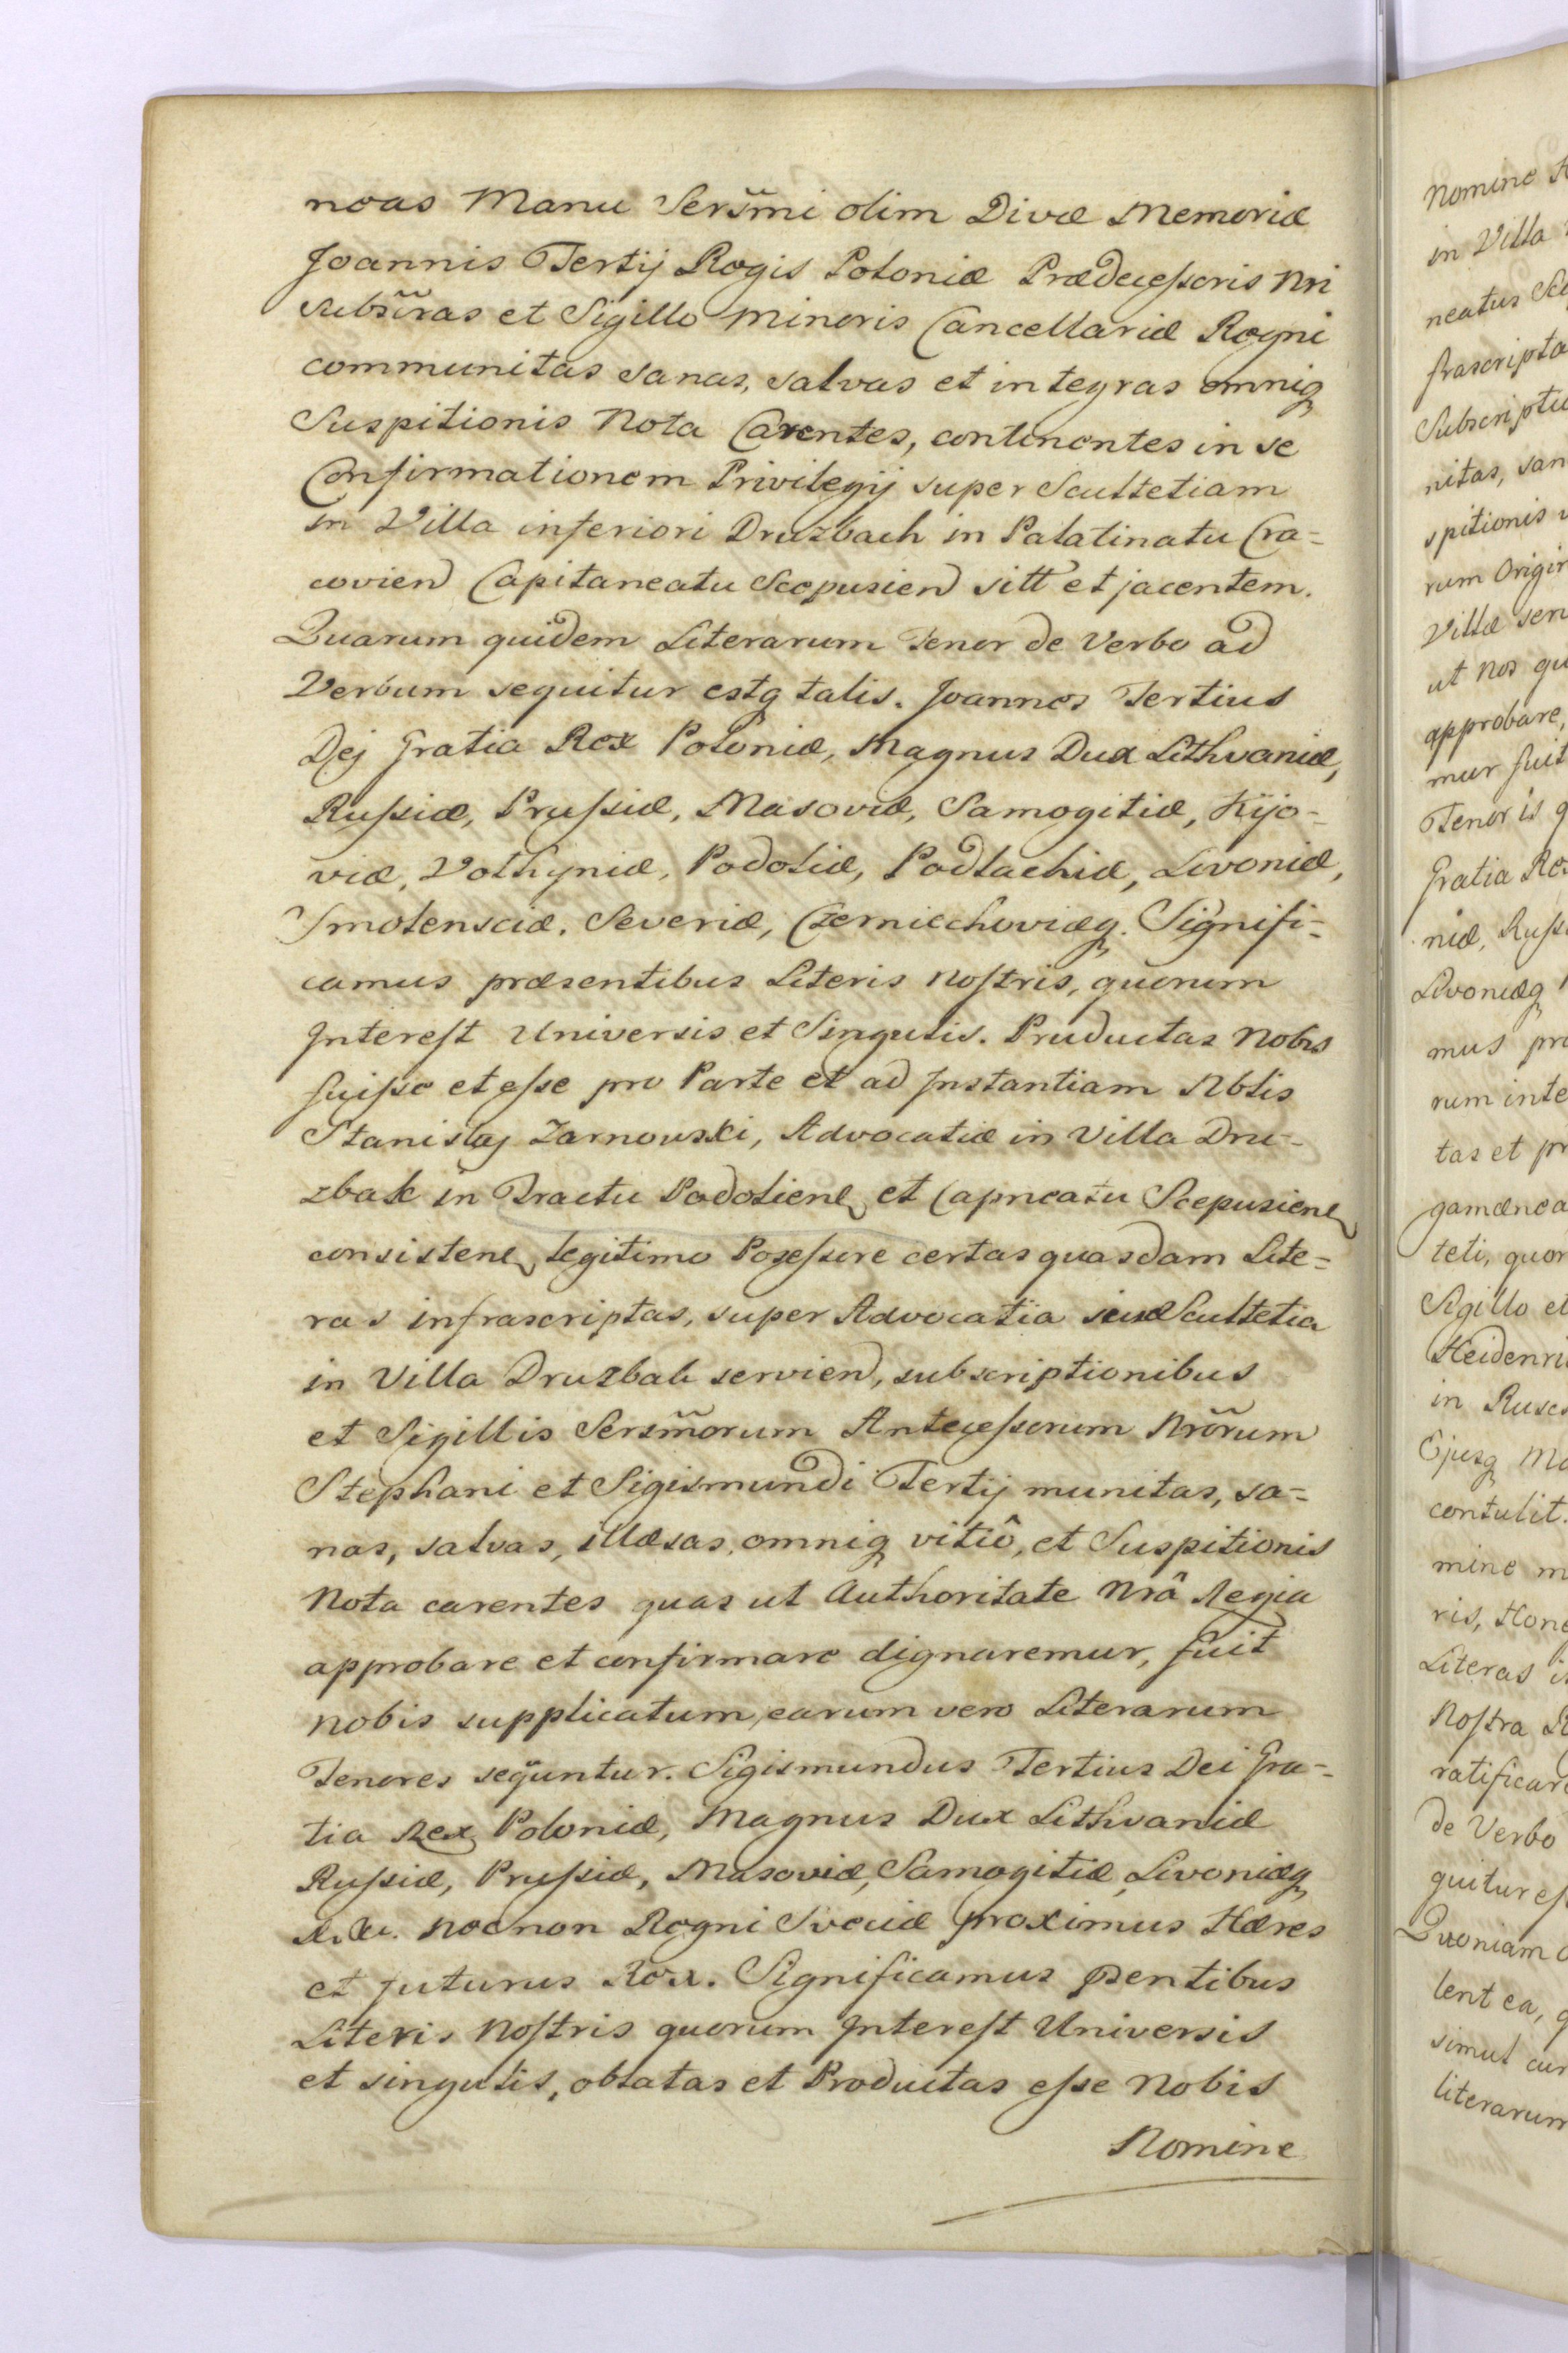 neas Manu Sers̃mi olim Divæ Memoriæ
Joannis Tertij Regis Poloniæ Prædeceſsoris Nri
subsc̃ras et Sigillo minoris Cancellariæ Regni
communitas sanas, salvas et integras omniq
Suspitionis Nota Carentes, continentes in se
Confirmationem Privilegij super Scultetiam
in Villa inferiori Druzbach in Palatinatu Cra=
covien Capitaneatu Scepusien sitt et jacentem.
Quarum quidem Literarum Tenor de Verbo ad
Verbum sequitur estq talis. Joannes Tertius
Dej Gratia Rex Poloniæ, Magnus Dux Lithvaniæ,
Ruſsiæ, Pruſsiæ, Masoviæ, Samogitiæ, Kijo=
viæ, Volhyniæ, Podoliæ, Podlachiæ, Livoniæ,
Smolensciæ, Severiæ, Czerniechoviæq. Signifi=
camus præsentibus Literis noſtris, quorum
Intereſt Universis et Singulis. Productas nobis
fuiſse et eſse pro Parte et ad Instantiam Nblis
Stanislaj Zarnouski, Advocatiæ in Villa Dru=
zbak in Tractu Podoliene et Capneatu Scepusiene
consistene legitimo Poseſsore certas quasdam Lite=
ras infrascriptas, super Advocatia seu Scultetia
in Villa Druzbak servien, subscriptionibus
et Sigillis Sersm̃orum Anteceſsorum Nrõrum
Stephani et Sigismundi Tertij munitas, sa=
nas, salvas, illæsas, omniq vitiô, et Suspitionis
Nota carentes quas ut Authoritate Nrâ Regia
approbare et confirmare dignaremur, fuit
nobis supplicatum, earum vero Literarum
Tenores sequntur. Sigismundus Tertius Dei Gra=
tia Rex Poloniæ, Magnus Dux Lithvaniæ
Ruſsiæ, Pruſsiæ, Masoviæ, Samogitiæ, Livoniæq
necnon Regni Sveciæ proximus Hæres
et futurus Rex. Significamus pſentibus
Literis Noſtris quorum Intereſt Universis
et singulis, oblatas et Productas eſse Nobis
Nomine
nomine
in Villa
neatus
frascripta
Subscriptio
nitas, san
spitionis
rum Origin
Villæ
ut nos qu
approbare,
mur fuit
Tenor is q
Gratia
niæ, Ruſs
Livoniæq
mus
rum inte
tas et pr
teti, quor
Sigillo et
Heidenr
in
Ejusq Ma
contulit.
mine m
ris, Hone
Literas
Noſtra
ratificar
de Verbo
quitur eſ
Quoniam
lent ea, q
simul cu
literarum